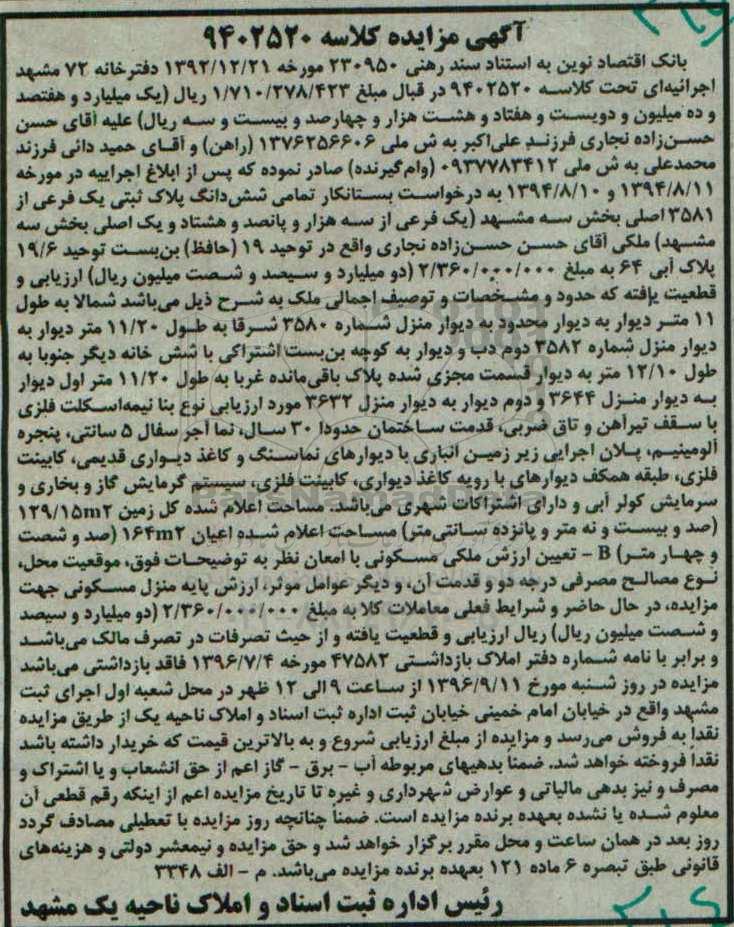 آگهی مزایده کلاسه ۹۴۰۲۵۲۰
بانک اقتصاد نوین به استناد سند رهنی ۲۳۰۹۵۰ مورخه ۱۳۹۲/۱۲/۲۱ دفترخانه ۷۲ مشهد
اجرائیه‌ای تحت کلاسه ۹۴۰۲۵۲۰ در قبال مبلغ ۱/۷۱۰/۲۷۸/۴۲۳ ریال (یک میلیارد و هفتصد
و ده میلیون و دویست و هفتاد و هشت هزار و چهارصد و بیست و سه ریال) علیه آقای حسن
حسن‌زاده نجاری فرزند علی‌اکبر به ش ملی ۱۳۷۶۲۵۶۶۰۶ (راهن) و آقای حمید دائی فرزند
محمدعلی به ش ملی ۰۹۳۷۷۸۳۴۱۲ (وام‌گیرنده) صادر نموده که پس از ابلاغ اجراییه در مورخه
۱۳۹۴/۸/۱۱ و ۱۳۹۴/۸/۱۰ به درخواست بستانکار تمامی شش‌دانگ پلاک ثبتی یک فرعی از
۳۵۸۱ اصلی بخش سه مشهد (یک فرعی از سه هزار و پانصد و هشتاد و یک اصلی بخش سه
مشهد) ملکی آقای حسن حسن‌زاده نجاری واقع در توحید ۱۹ (حافظ) بن‌بست توحید ۱۹/۶
پلاک آبی ۶۴ به مبلغ ۲/۳۶۰/۰۰۰/۰۰۰ (دو میلیارد و سیصد و شصت میلیون ریال) ارزیابی و
قطعیت یافته که حدود و مشخصات و توصیف اجمالی ملک به شرح ذیل می‌باشد شمالا به طول
۱۱ متر دیوار به دیوار محدود به دیوار منزل شماره ۳۵۸۰ شرقا به طول ۱۱/۲۰ متر دیوار به
دیوار منزل شماره ۳۵۸۲ دوم دب و دیوار به کوچه بن‌بست اشتراکی با شش خانه دیگر جنوبا به
طول ۱۲/۱۰ متر به دیوار قسمت مجزی شده پلاک باقی‌مانده غربا به طول ۱۱/۲۰ متر اول دیوار
به دیوار منزل ۳۶۴۴ و دوم دیوار به دیوار منزل ۳۶۳۲ مورد ارزیابی نوع بنا نیمه‌اسکلت فلزی
با سقف تیرآهن و تاق ضربی، قدمت ساختمان حدودا ۳۰ سال، نما آجر سفال ۵ سانتی، پنجره
آلومینیم، پلان اجرایی زیر زمین انباری با دیوارهای نماسنگ و کاغذ دیواری قدیمی، کابینت
فلزی، طبقه همکف دیوارهای با رویه کاغذ دیواری، کابینت فلزی، سیستم گرمایش گاز و بخاری و
سرمایش کولر آبی و دارای اشتراکات شهری می‌باشد. مساحت اعلام شده کل زمین ۱۲۹/۱۵m۲
(صد و بیست و نه متر و پانزده سانتی‌متر) مساحت اعلام شده اعیان ۱۶۴m۲ (صد و شصت
و چهار متر) B - تعیین ارزش ملکی مسکونی با امعان نظر به توضیحات فوق، موقعیت محل،
نوع مصالح مصرفی درجه دو و قدمت آن، و دیگر عوامل موثر، ارزش پایه منزل مسکونی جهت
مزایده، در حال حاضر و شرایط فعلی معاملات کلا به مبلغ ۲/۳۶۰/۰۰۰/۰۰۰ (دو میلیارد و سیصد
و شصت میلیون ریال) ریال ارزیابی و قطعیت یافته و از حیث تصرفات در تصرف مالک می‌باشد
و برابر با نامه شماره دفتر املاک بازداشتی ۴۷۵۸۲ مورخه ۱۳۹۶/۷/۴ فاقد بازداشتی می‌باشد
مزایده در روز شنبه مورخ ۱۳۹۶/۹/۱۱ از ساعت ۹ الی ۱۲ ظهر در محل شعبه اول اجرای ثبت
مشهد واقع در خیابان امام خمینی خیابان ثبت اداره ثبت اسناد و املاک ناحیه یک از طریق مزایده
نقدا به فروش می‌رسد و مزایده از مبلغ ارزیابی شروع و به بالاترین قیمت که خریدار داشته باشد
نقدا فروخته خواهد شد. ضمنا بدهیهای مربوطه آب - برق - گاز اعم از حق انشعاب و یا اشتراک و
مصرف و نیز بدهی مالیاتی و عوارض شهرداری و غیره تا تاریخ مزایده اعم از اینکه رقم قطعی آن
معلوم شده یا نشده بعهده برنده مزایده است. ضمنا چنانچه روز مزایده با تعطیلی مصادف گردد
روز بعد در همان ساعت و محل مقرر برگزار خواهد شد و حق مزایده و نیمعشر دولتی و هزینه‌های
قانونی طبق تبصره ۶ ماده ۱۲۱ بعهده برنده مزایده می‌باشد. م - الف ۳۳۴۸
رئیس اداره ثبت اسناد و املاک ناحیه یک مشهد